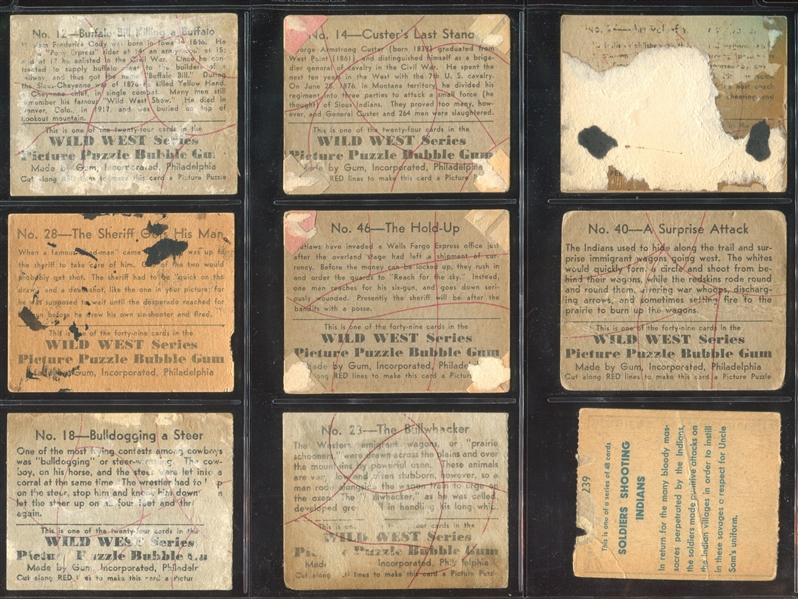 No. 12—Buffalo Bill Killing a Buffalo
Frederick Cody was born in Iowa in 1846. He
"Pony Express" rider at 14; an army scout at 15;
at 17 he enlisted in the Civil War. Since he con-
tracted to supply buffalo meat to the builders of
railway, and thus got the name "Buffalo Bill." During
the Sioux-Cheyenne war of 1876 he killed Yellow Hand,
Cheyenne chief, in single combat. Many men still
remember his famous "Wild West Show." He died in
Denver, Colo. in 1917, and was buried on top of
Lookout mountain.
This is one of the twenty-four cards in the
WILD WEST Series
Picture Puzzle Bubble Gum
Made by Gum, Incorporated, Philadelphia
Cut along RED lines to make this card a Picture Puzzle
No. 14—Custer's Last Stand
George Armstrong Custer (born 1839) graduated from
West Point (1861) and distinguished himself as a briga-
dier general of cavalry in the Civil War. He spent the
next ten years in the West with the 7th U. S. cavalry.
On June 25, 1876, in Montana territory, he divided his
regiment into three parties to attack a small force (he
thought) of Sioux Indians. They proved too many, how-
ever, and General Custer and 264 men were slaughtered.
This is one of the twenty-four cards in the
WILD WEST Series
Picture Puzzle Bubble Gum
Made by Gum, Incorporated, Philadelphia
Cut along RED lines to make this card a Picture
No. 28—The Sheriff Gets His Man
When a famous "bad-man" came was up to
the sheriff to take care of him. of the two would
probably get shot. The sheriff had to be "quick on the
draw" and a dead-shot, like the one in your picture, for
he was supposed to wait until the desperado reached for
gun before he drew his own six-shooter and fired.
This is one of the forty-nine cards in the
WILD WEST Series
Picture Puzzle Bubble Gum
Made by Gum, Incorporated, Philadelphia
No. 46—The Hold-Up
Outlaws have invaded a Wells Fargo Express office just
after the overland stage had left a shipment of cur-
rency. Before the money can be locked up, they rush in
and order the guards to "Reach for the sky." Instead,
one man reaches for his six-gun, and goes down seri-
ously wounded. Presently the sheriff will be after the
bandits with a posse.
This is one of the forty-nine cards in the
WILD WEST Series
Picture Puzzle Bubble Gum
by Gum, Incorporated, Philadelphia
Cut along RED lines to make this card a Picture
No. 40—A Surprise Attack
The Indians used to hide along the trail and sur-
prise immigrant wagons going west. The whites
would quickly form a circle and shoot from be-
hind their wagons, while the redskins rode round
and round them, uttering war whoops, discharg-
ing arrows, and sometimes setting fire to the
prairie to burn up the wagons.
This is one of the forty-nine cards in the
WILD WEST Series
Picture Puzzle Bubble Gum
Made by Gum, Incorporated, Philadelphia
Cut along RED lines to make this card a Picture Puzzle
No. 18—Bulldogging a Steer
One of the most trying contests among cowboys
was "bulldogging" or steer-wrestling. The cow-
boy, on his horse, and the steer were let into a
corral at the same time. The wrestler had to
on the steer, stop him and knock him down
let the steer up on all four feet and
again.
This is one of the twenty-four cards in the
WILD WEST Series
Picture Puzzle Bubble Gum
Made by Gum, Incorporated, Philadelphia
Cut along RED lines to make this card a Picture
No. 23—The Bullwhacker
The Western emigrant wagons, or "prairie
schooners," were drawn across the plains and over
the mountains by powerful oxen. These animals
are often stubborn, however, so a
man rode alongside the wagon to urge on
the oxen. The "Bullwhacker," as he was called,
developed great skill in handling his long whip.
This is one of the cards in the
WILD WEST Series
Picture Puzzle Bubble Gum
Incorporated, Philadelphia
to make this card a Picture
239
This is one of a series of 48 cards
SOLDIERS SHOOTING
INDIANS
In return for the many bloody mas-
sacres perpetrated by the Indians,
the soldiers made punitive attacks on
the Indian villages in order to instill
in these savages a respect for Uncle
Sam's uniform.